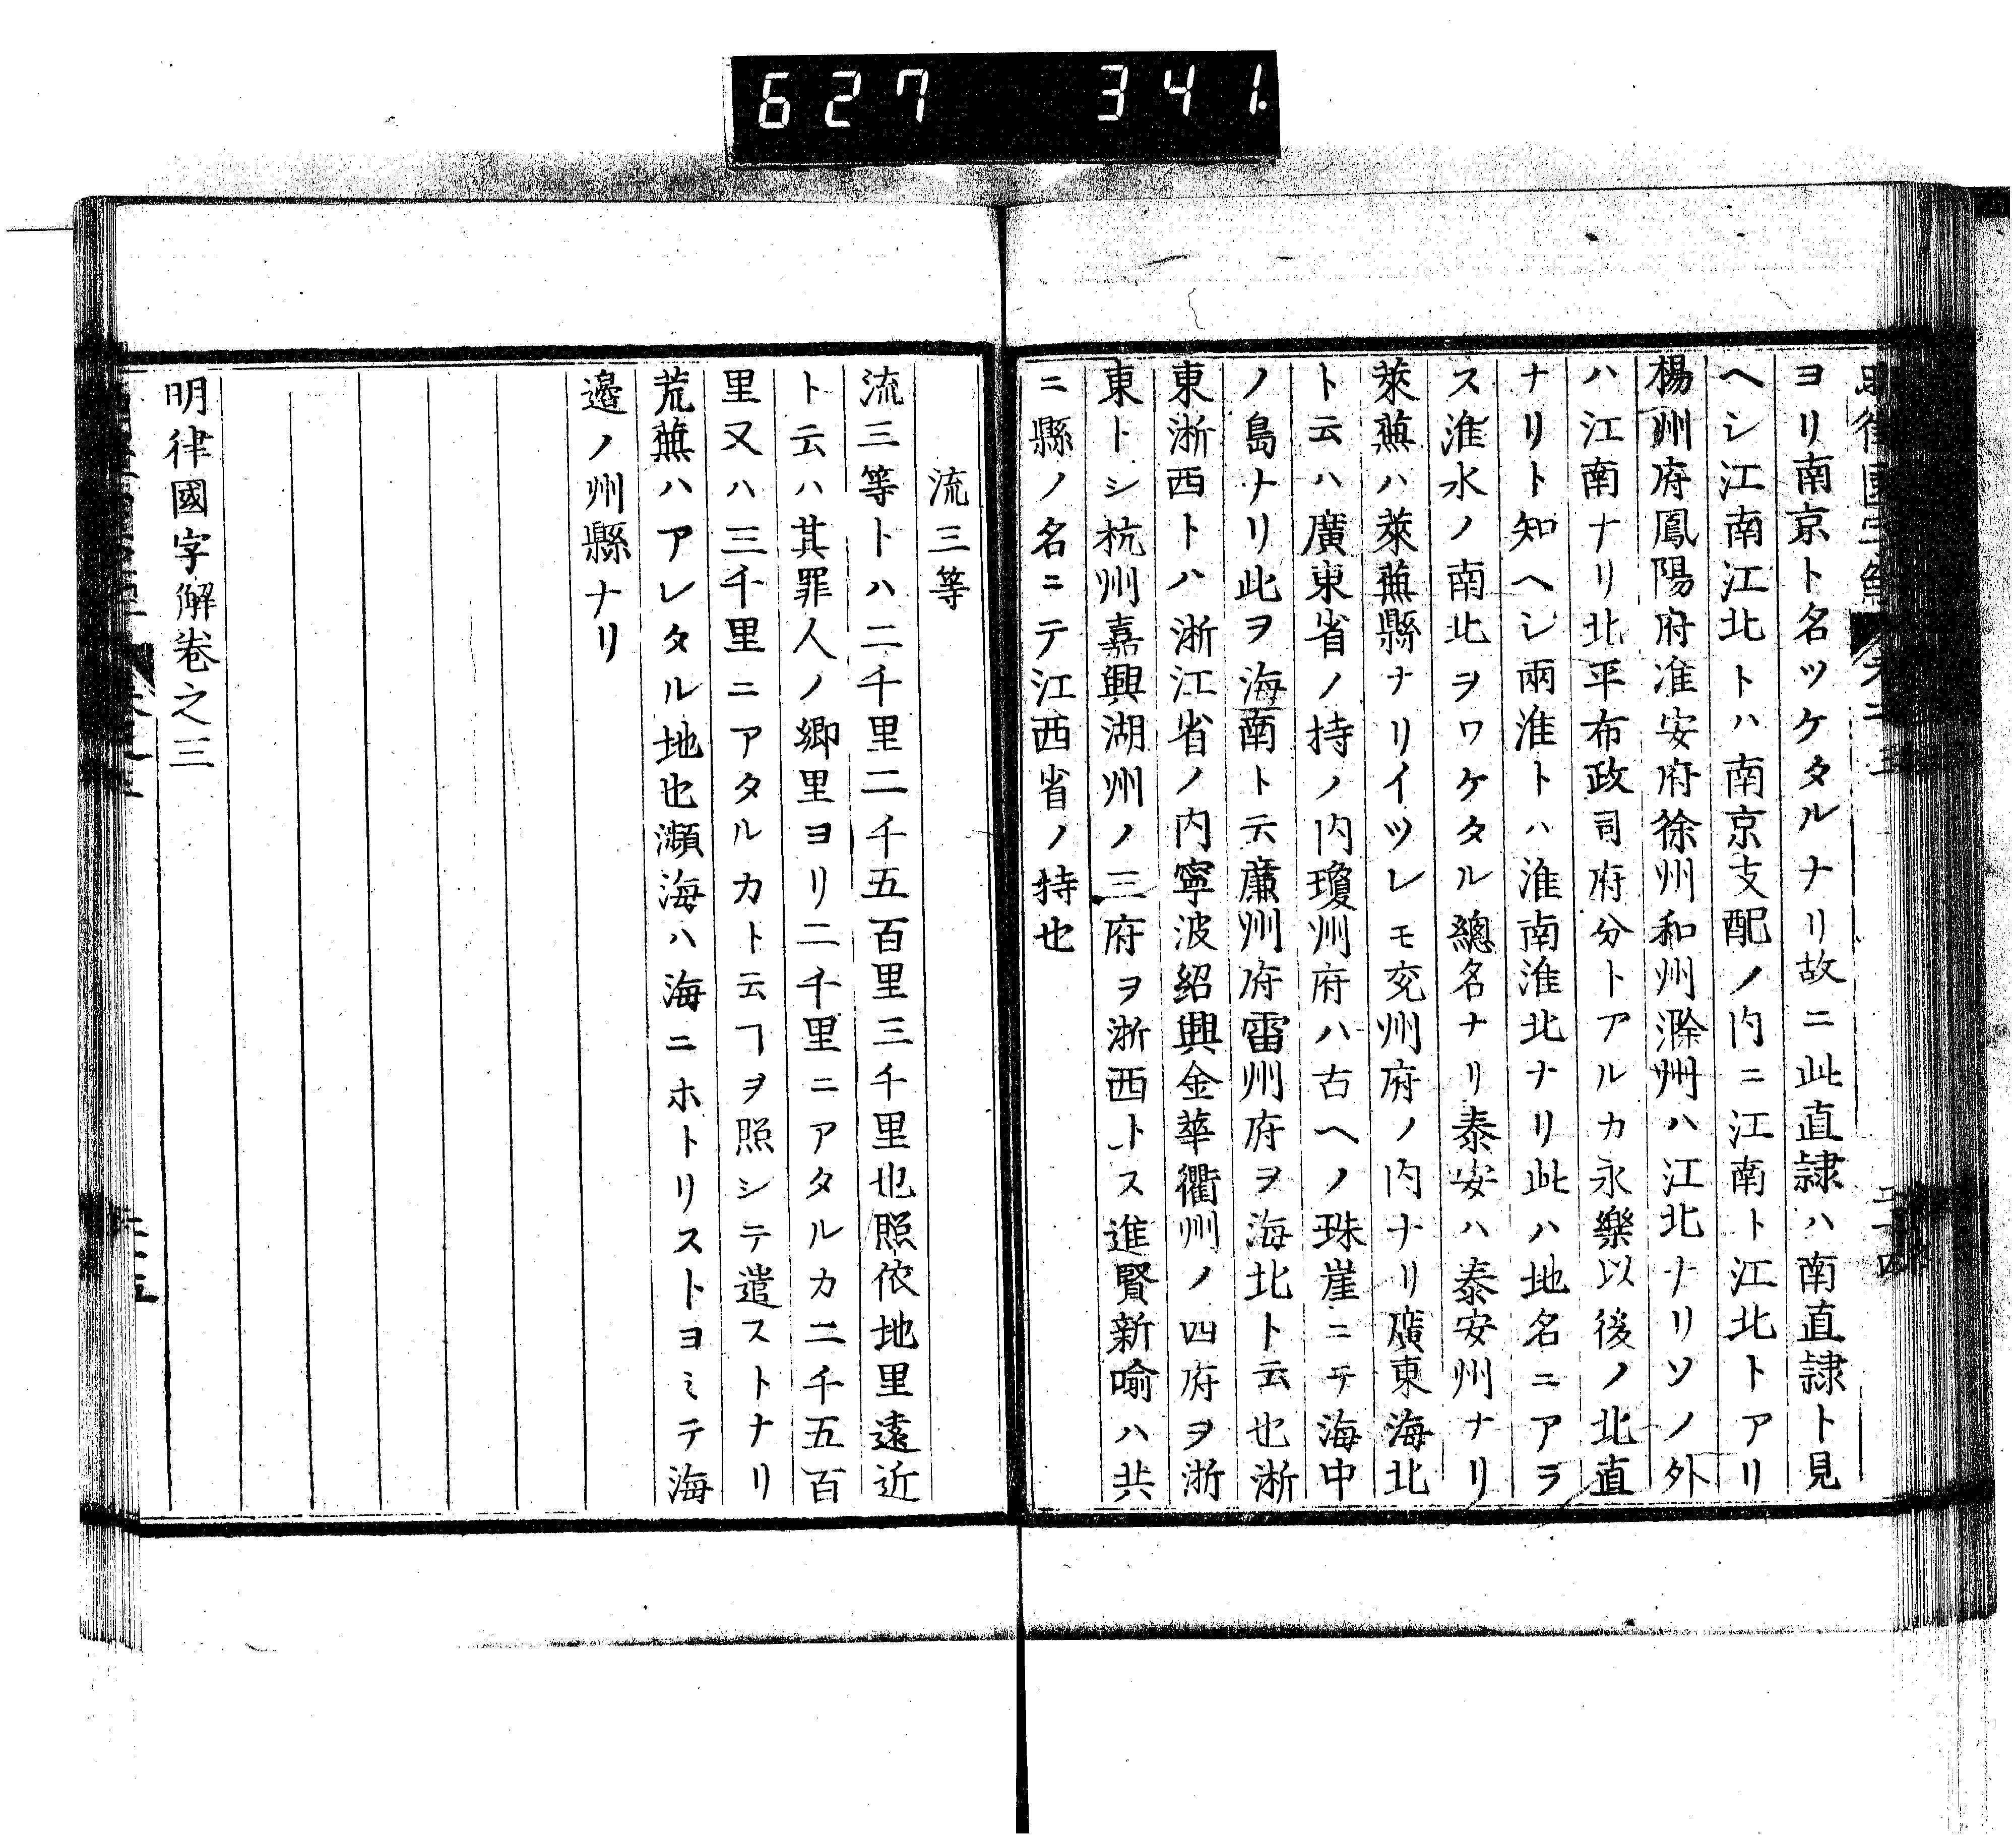 627 341
ヨリ南京ト名ツケタルナリ故ニ此直隷ハ南直隷ト見
ヘシ江南江北トハ南京支配ノ内ニ江南ト江北トアリ
楊州府鳳陽府淮安府徐州和州滁州ハ江北ナリソノ外
ハ江南ナリ北平布政司府分トアルカ永樂以後ノ北直
ナリト知ヘシ兩淮トハ淮南淮北ナリ此ハ地名ニアラ
ス淮水ノ南北ヲワケタル總名ナリ泰安ハ泰安州ナリ
萊蕪ハ萊蕪縣ナリイツレモ兗州府ノ内ナリ廣東海北
ト云ハ廣東省ノ持ノ内瓊州府ハ古ヘノ珠崖ニテ海中
ノ島ナリ此ヲ海南ト云廉州府雷州府ヲ海北ト云也浙
東浙西トハ浙江省ノ内寧波紹興金華衢州ノ四府ヲ浙
東トシ杭州嘉興湖州ノ三府ヲ浙西トス進賢新喻ハ共
ニ縣ノ名ニテ江西省ノ持也
流三等
流三等トハ二千里二千五百里三千里也照依地里遠近
ト云ハ其罪人ノ鄉里ヨリ二千里ニアタルカ二千五百
里又ハ三千里ニアタルカト云ヿヲ照シテ遣ストナリ
荒蕪ハアレタル地也瀕海ハ海ニホトリストヨミテ海
邊ノ州縣ナリ
明律國字解卷之三